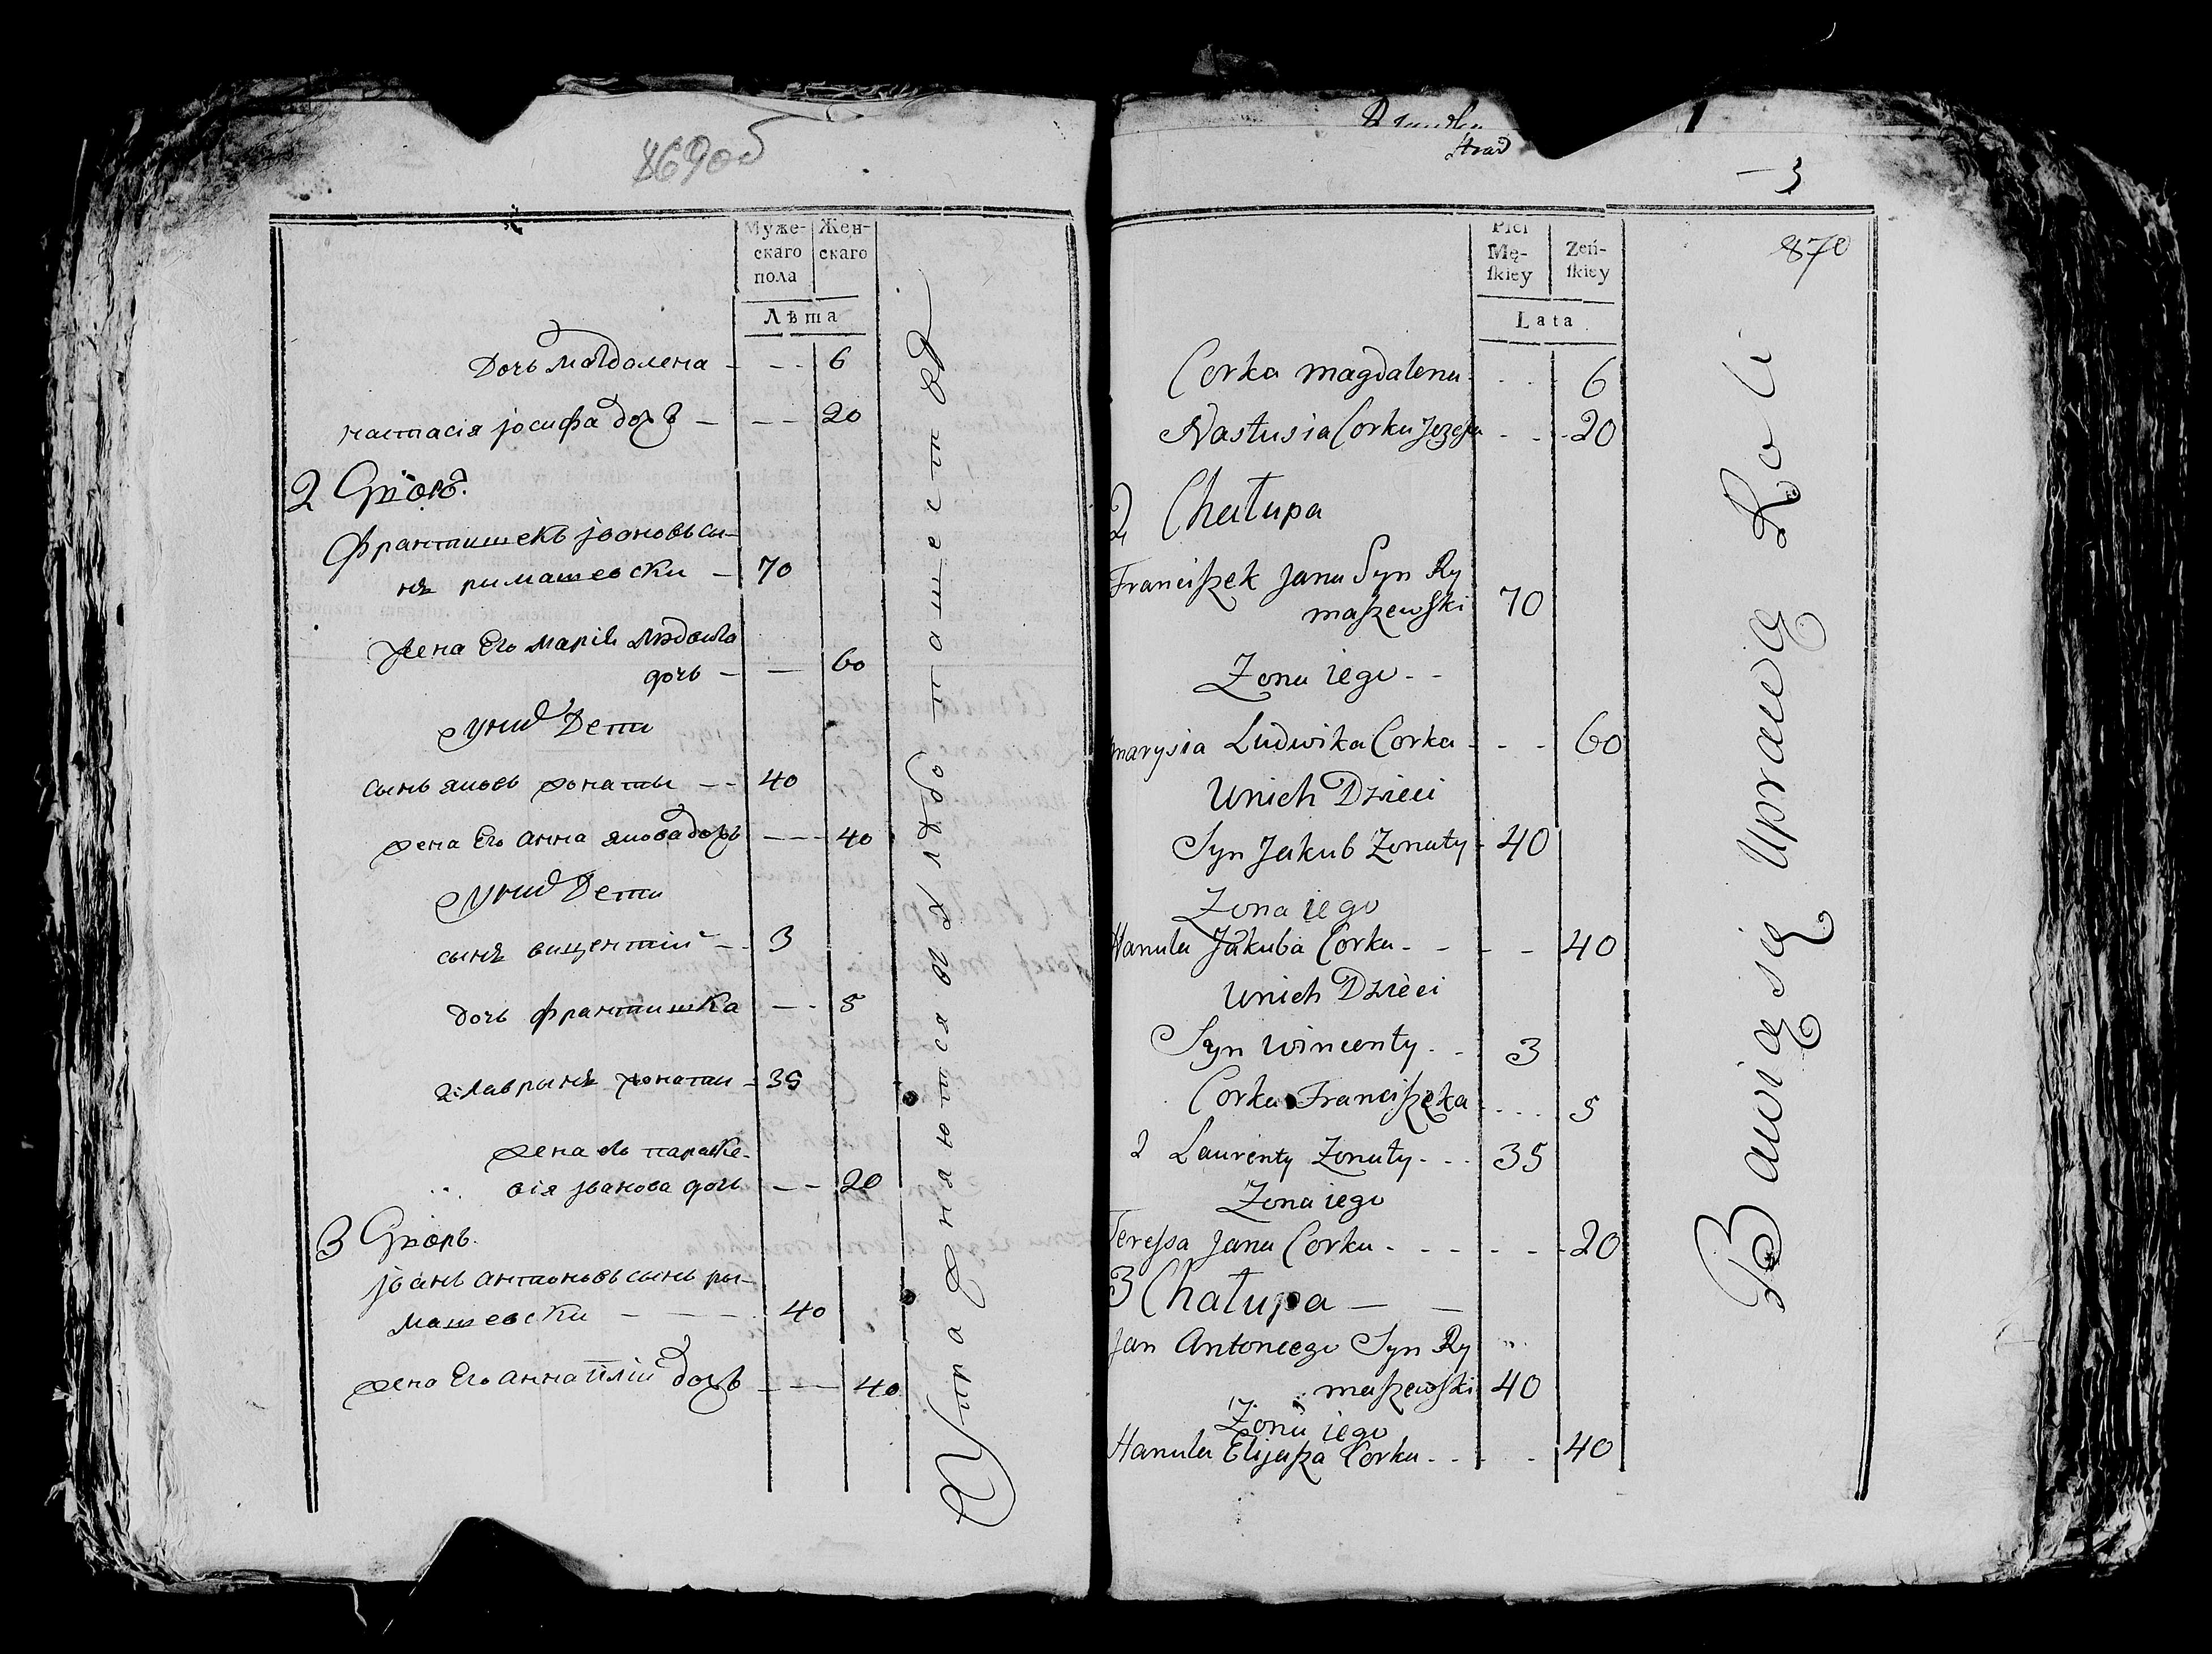 869об
Муже-
скаго
пола
Жен-
скаго
Лѣта
Дочь магдалена - - - 6
настасія јосифа дочъ - - - 20
2 Дворъ.
Франтишекъ јвановъ сы-
нъ римашевски - 70
жена Его марія людвига
дочь - - 60
У них Дети
сынъ яковъ жонаты - - 40
жена Его анна якова дочь - - - 40
У них Дети
сынъ вицентій - - 3
дочь франтишка - - 5
2: лаврынъ жонаты - 35
жена его параске-
вія јванова дочь - - 20
3 Дворъ.
јванъ антоновъ сынъ ры-
машевски - - - - 40
жена Его анна иліи дочъ - - - 40
Упражняются въ хлѣбопашествѣ
3
870
Płci
Mę-
ſkiey
Zeń-
ſkiey
Lata
Corka magdalena - - - 6
Nastusia Corka Jozefa - - - 20
2 Chałupa
Franciſzek Jana Syn Ry
maſzewſki 70
Zona iego - -
marysia Ludwika Corka - - - 60
Unich Dzieci
Syn Jakub Zonaty - 40
Zona iego
Hanula Jakuba Corka - - - - 40
Unich Dzieci
Syn Wincenty - - 3
Corka Franciſzka - - - 5
2 Laurenty Zonaty - - - 35
Zona iego
Tereſsa Jana Corka - - - - - - 20
3 Chałupa - -
Jan Antoniego Syn Ry
maſzewſki 40
Zona iego
Hanula Elijaſza Corka - - - - 40
Bawią się Uprawą Roli